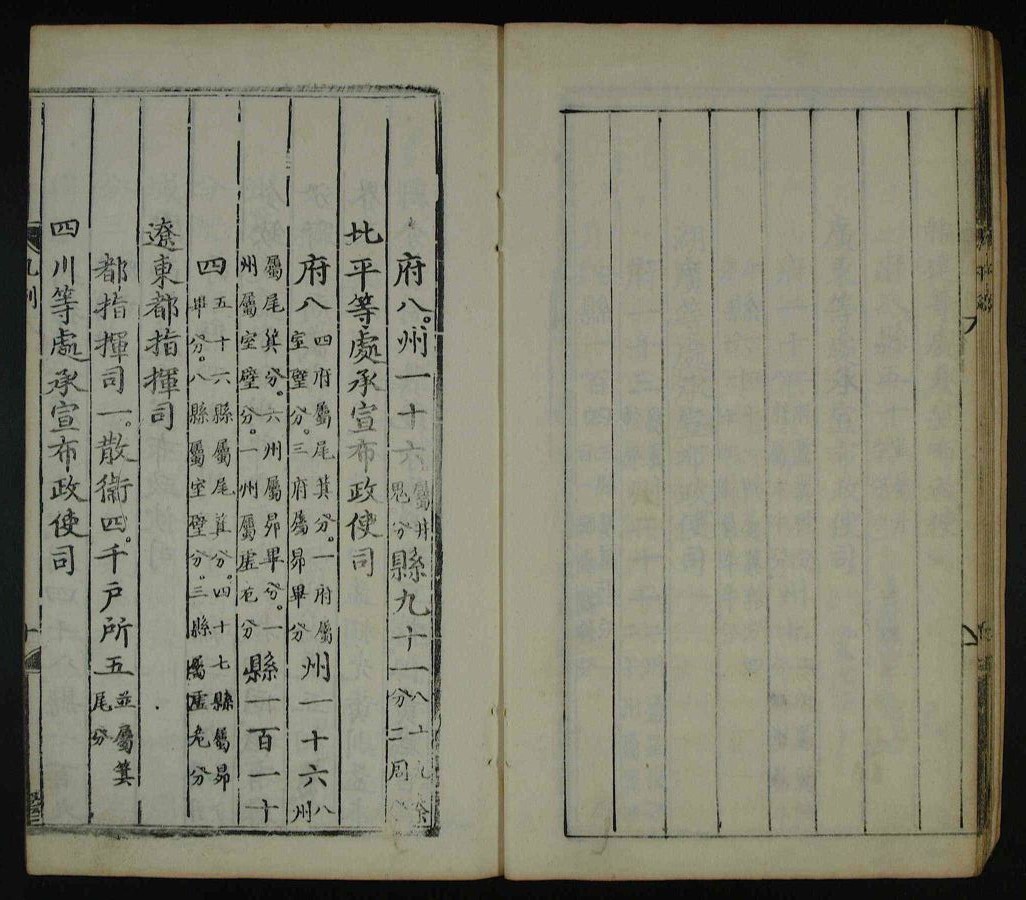 府八。州一十六屬井鬼分縣九十一
北平等處承宣布政使司
府八四府屬尾箕分。一府屬室璧分。三府屬昴畢分州一十六八州
屬尾箕分。六州屬昴畢分。一州屬室壁分。一州屬虛危分縣一百一十
四五十六縣屬尾箕分。四十七縣屬昴畢分。八縣屬室壁分。三縣屬虛危分
遼東都指揮司
都指揮司一。散衞四。千戶所五並屬箕尾分
四川等處承宣布政使司